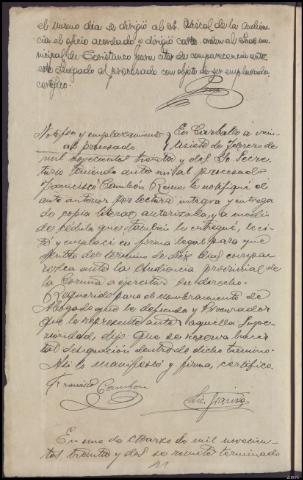 el mismo dia se dirigió al Sr. Fiscal de la Audien
cia el oficio acordado y dirigió carta orden al
para citar de comparecencia ante
este Juzgado al procesado con objeto de ser emplazado
certifico.
Notifon y emplazamiento } En Carballo a vein
al procesado } tisiete de febrero de
mil novecientos treinta y dos. Yo Secre
tario teniendo ante mi al procesado
Francisco Cambón Reino le notifiqué el
auto anterior por lectura íntegra y entrega
de copia literal autorizada, y a medio
de cédula que tambien le entregué, le ci
té y emplacé en forma legal para que
dentro del termino de diez dias compa
rezca ante la Audiencia provincial de
la Coruña a ejercitar su derecho.
Requerido para el nombramiento de
Abogado que le defienda y Procurador
que le represente ante aquella Supe
rioridad, dijo que se reserva hacer
tal designación dentro de dicho termino.
Así lo manifestó y firma, certifico.
Francisco Cambon
En uno de Marzo de mil novecien
tos treinta y dos se remite terminado